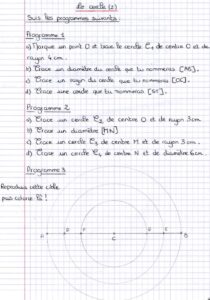 Le cercle (2)
Suis les programmes suivants:
Programme 1
a) Marque un point O et trace le cercle C1 de centre O et de
rayon 4 cm.
b) Trace un diamètre du cercle que tu nommeras [AB].
c) Trace un rayon du cercle que tu nommeras [OC].
d) Trace une corde que tu nommeras [ST].
Programme 2
a) Trace un cercle C2 de centre O et de rayon 3 cm
b) Trace un diamètre [MN]
c) Trace un cercle C3 de centre M et de rayon 3 cm.
d) Trace un cercle C4 de centre N et de diamètre 6 cm.
Programme 3
Reproduis cette cible
puis colorie là!
A
C
B